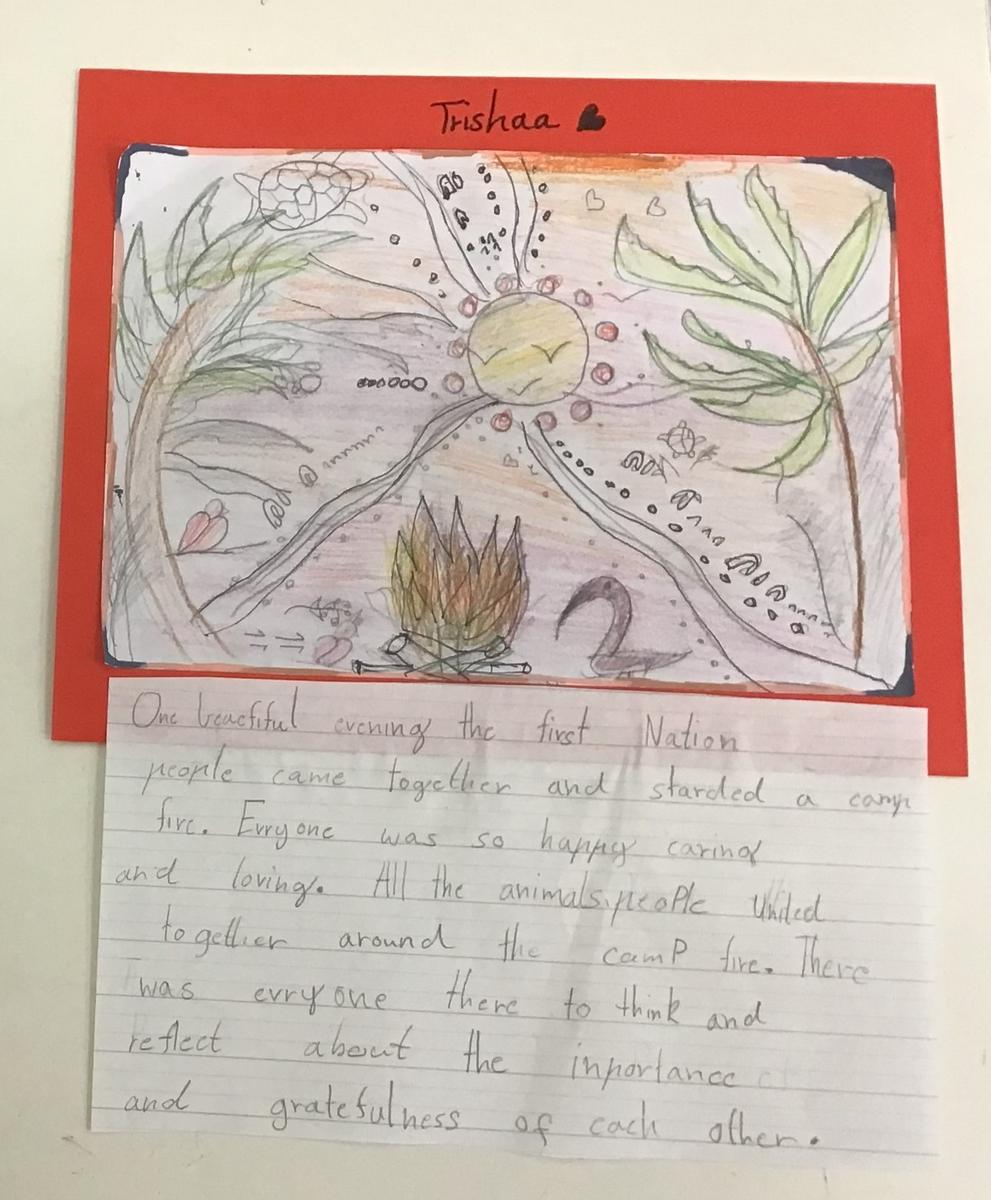 Trishaa
One beactiful evening the first Nation
people came together and starded a camp
fire. Evryone was so happy caring
and loving. All the animals, people United
together around the camp fire. There
was evryone there to think and
reflect about the inportance
and gratefulness of each other.